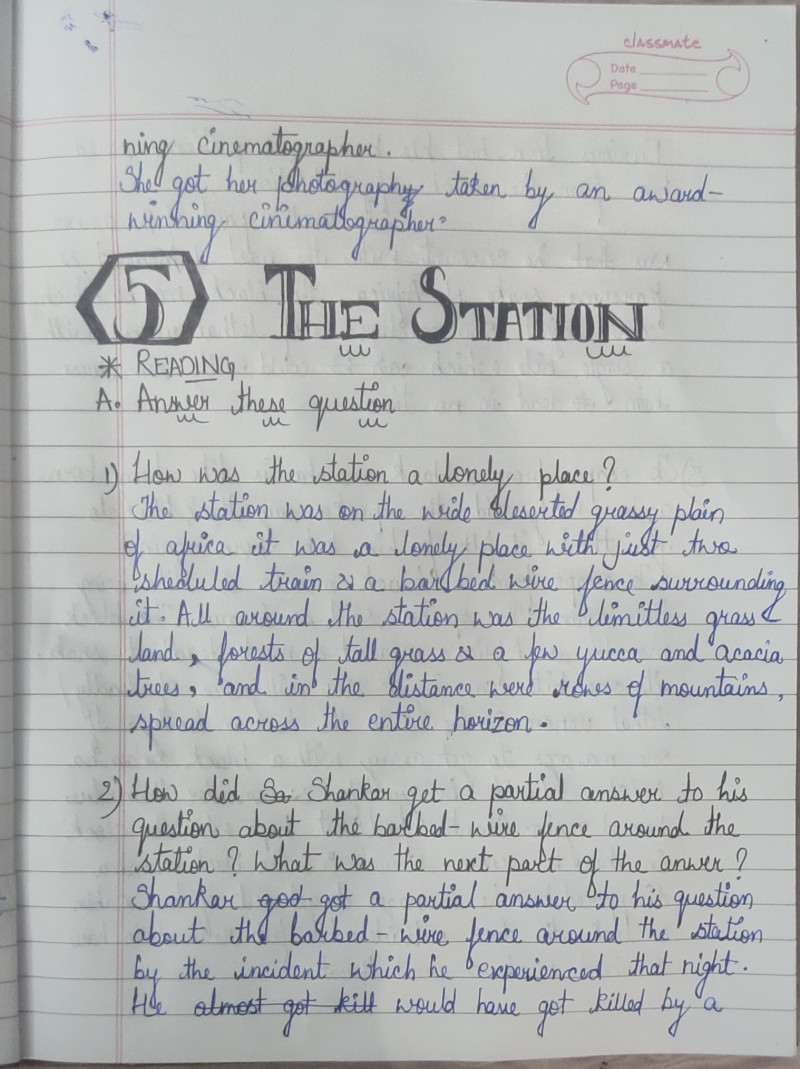 classmate
Date
Page
ning cinematographer.
She got her photography taken by an award-
winning cinimatographer.
5 THE STATION
* READING
A. Answer these question
1) How was the station a lonely place?
The station was on the wide deserted grassy plain
of africa it was a lonely place with just two
sheduled train & a barbed wire fence surrounding
it. All around the station was the limitless grass
land, forests of tall grass & a few yucca and acacia
trees, and in the distance were rows of mountains,
spread across the entire horizon.
2) How did So Shankar get a partial answer to his
question about the barbed-wire fence around the
station? What was the next part of the anwer?
Shankar god got a partial answer to his question
about the barbed-wire fence around the station
by the incident which he experienced that night.
He almost got kill would have got killed by a